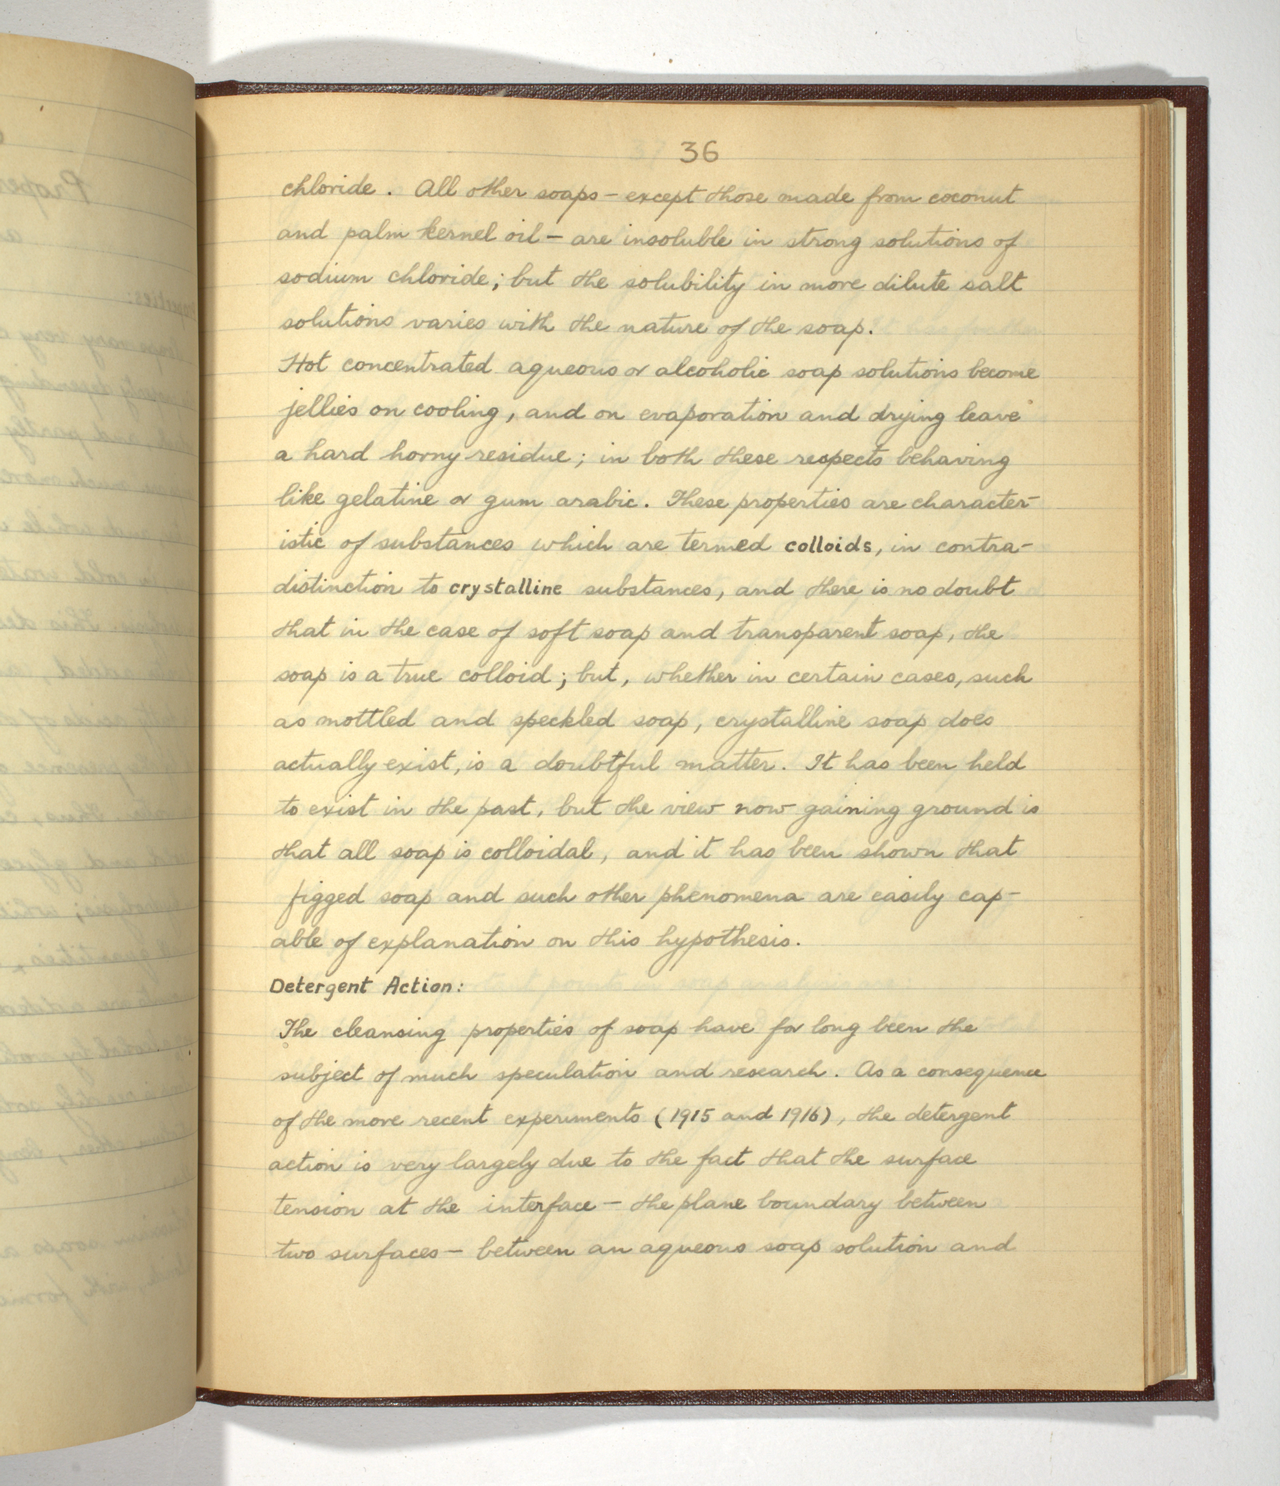 36
chloride. All other soaps – except those made from coconut
and palm kernel oil – are insoluble in strong solutions of
sodium chloride; but the solubility in more dilute salt
solutions varies with the nature of the soap.
Hot concentrated aqueous or alcoholic soap solutions become
jellies on cooling, and on evaporation and drying leave
a hard horny residue; in both these respects behaving
like gelatine or gum arabic. These properties are character-
istic of substances which are termed colloids, in contra-
distinction to crystalline substances, and there is no doubt
that in the case of soft soap and transparent soap, the
soap is a true colloid; but, whether in certain cases, such
as mottled and speckled soap, crystalline soap does
actually exist, is a doubtful matter. It has been held
to exist in the past, but the view now gaining ground is
that all soap is colloidal, and it has been shown that
figged soap and such other phenomena are easily cap-
able of explanation on this hypothesis.
Detergent Action:
The cleansing properties of soap have for long been the
subject of much speculation and research. As a consequence
of the more recent experiments (1915 and 1916), the detergent
action is very largely due to the fact that the surface
tension at the interface – the plane boundary between
two surfaces – between an aqueous soap solution and